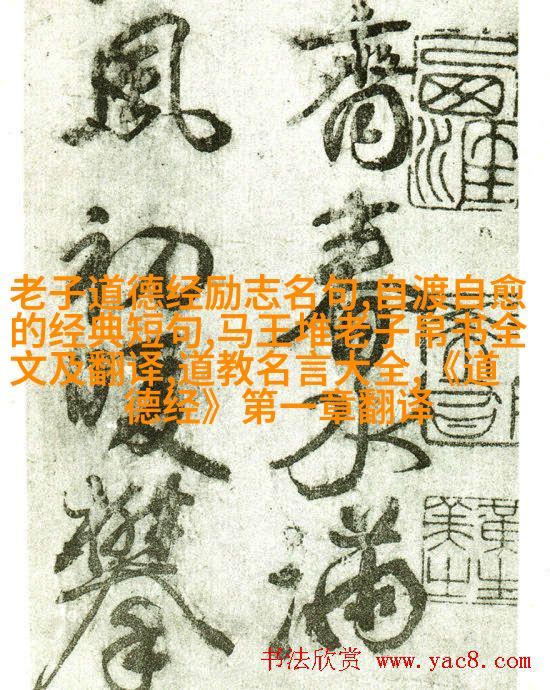 春水滿
風初攀
老子道德经励志名句,自渡自愈
的经典短句,马王堆老子帛书全
文及翻译,道教名言大全,《道
德经》第一章翻译
书法欣赏 www.yac8.com